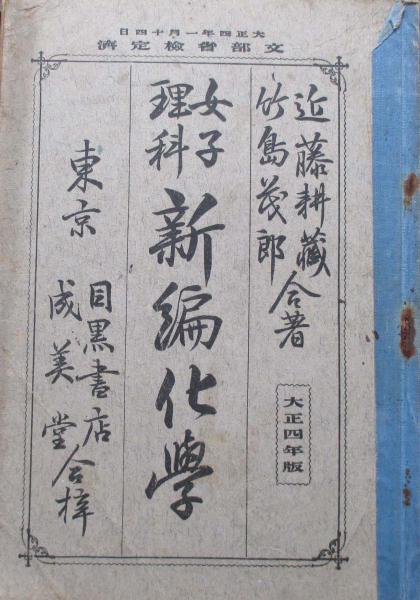 大正四年一月十四日
文部省検定済
近藤耕蔵
竹島茂郎
合著
大正四年版
女子
理科
新編化學
東京
目黒書店
成美堂
合梓